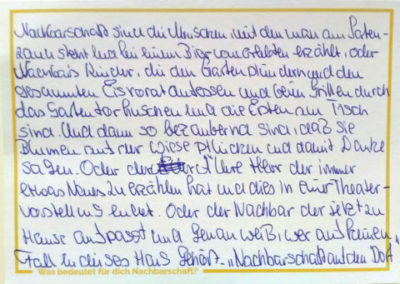 Nachbarschaft sind die Menschen, mit den man am Gaten-
zaun steht und bei einem Bier vom erlebten erzählt, oder
Nachbars Kinder, die den Garten plündern und den
gesamten Eisvorat aufessen und beim Grillen durch
das Gartentor huschen und die Ersten am Tisch
sind. Und dann so bezaubernd sind, daß sie
Blumen auf der Wiese pflücken und damit Danke
sagen. Oder der ältere Herr der immer
etwas Neues zu erzählen hat und dies in einer Theater-
vorstellung endet. Oder der Nachbar der jetzt zu
Hause aufpasst und genau weiß wer auf keinen
Fall in dieses Haus gehört. „Nachbarschaft auf dem Dorf
Was bedeutet für dich Nachbarschaft?